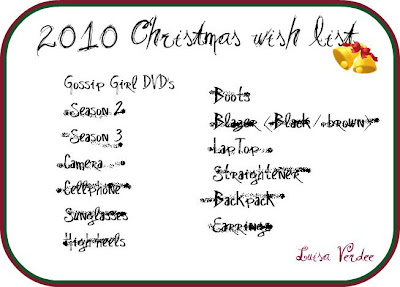 2010 Christmas wish list
Gossip Girl DVD's
Season 2
Season 3
Camera
Cellphone
Sunglasses
High heels
Boots
Blazer (Black / brown)
LapTop
Straightener
Backpack
Earrings
Luisa Verdee